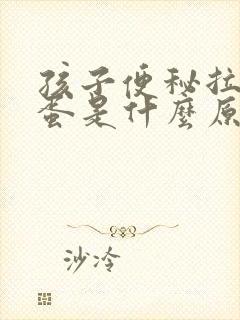 孩子便秘拉
蛋是什麼原
沙冷